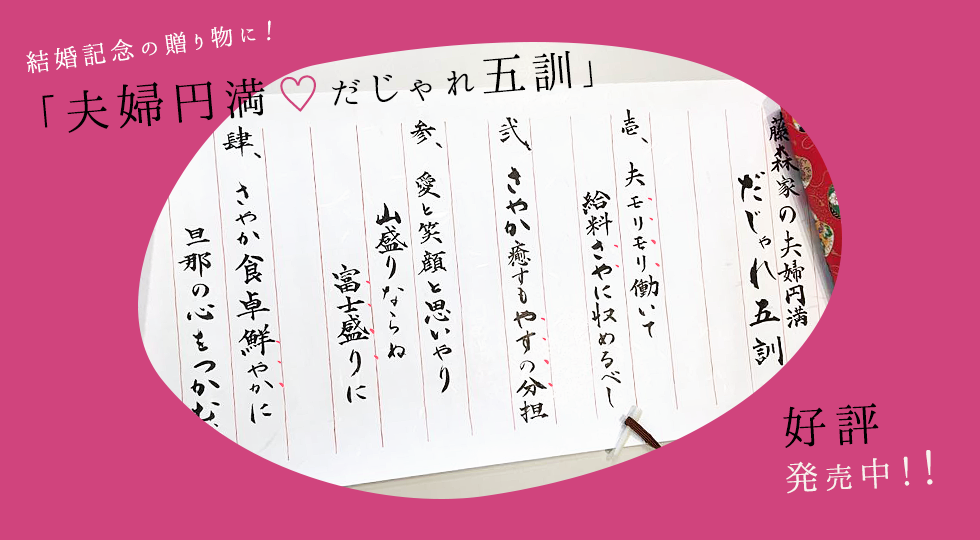 結婚記念の贈り物に!
「夫婦円満♡だじゃれ五訓」
藤森家の夫婦円満
だじゃれ五訓
壱、夫モリモリ働いて
給料さやに収めるべし
弐、さやか癒すもやすの分担
参、愛と笑顔と思いやり
山盛りならね
富士盛りに
肆、さやか食卓鮮やかに
旦那の心もつかむ、
好評
発売中!!